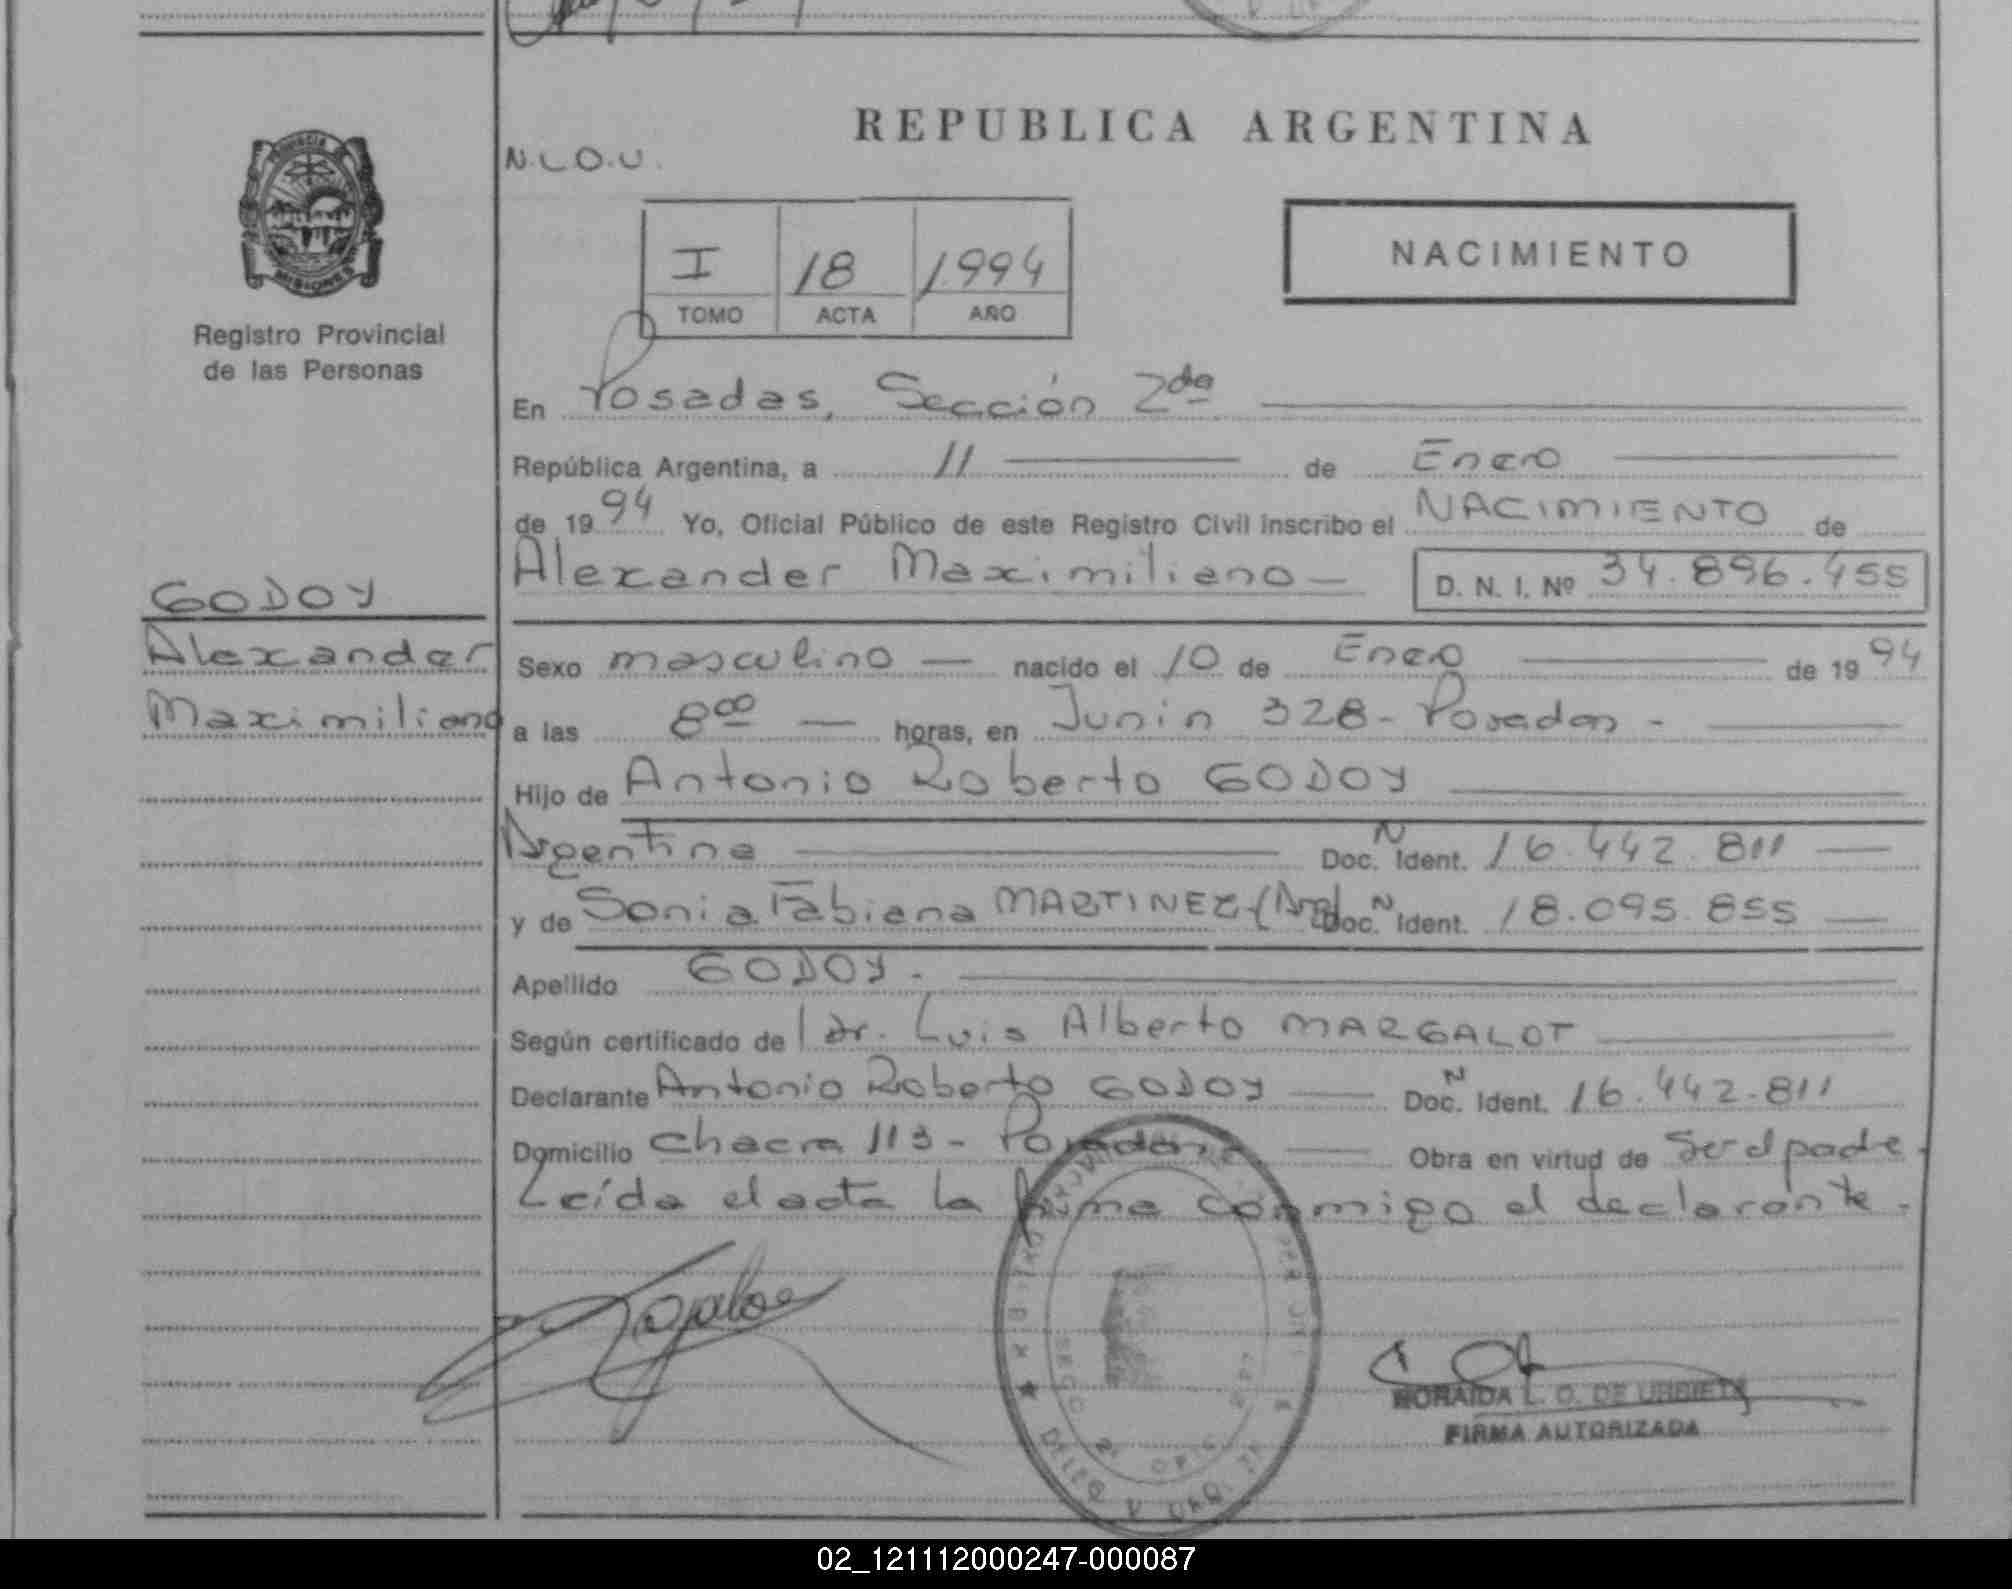 REPUBLICA ARGENTINA
N.L.O.U.
PROVINCIA DE
MISIONES
Registro Provincial
de las Personas
I 18 1994
TOMO ACTA AÑO
NACIMIENTO
En Posadas, Sección 2da
República Argentina, a 11 de Enero
de 1994 Yo, Oficial Público de este Registro Civil inscribo el NACIMIENTO de
Alexander Maximiliano D. N. I. Nº 34.896.455
GODOY
Alexander
Maximiliano
Sexo masculino nacido el 10 de Enero de 1994
a las 8 00 horas, en Junin 328 - Posadas -
Hijo de Antonio Roberto GODOY
Argentina Doc. N Ident. 16.442.811
y de Sonia Fabiana MARTINEZ-(Arg) Doc. N Ident. 18.095.855
Apellido GODOY.
Según certificado de dr. Luis Alberto MARGALOT
Declarante Antonio Roberto GODOY Doc. N Ident. 16.442.811
Domicilio Chacra 113 - Posadas Obra en virtud de Ser el padre.
Leída el acta la firma conmigo el declarante.
NORAIDA L. O. DE URBIETA
FIRMA AUTORIZADA
02_121112000247-000087